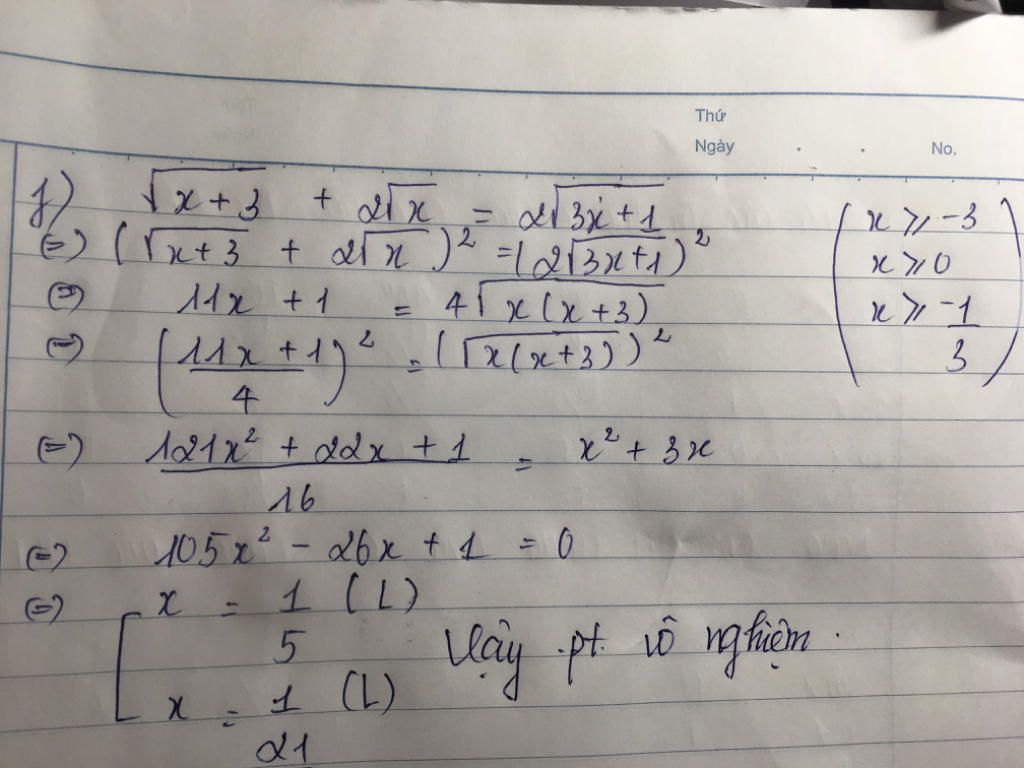 Thứ
Ngày . . No.
f) √(x + 3) + 2√x = 2√(3x + 1)
(=) (√(x + 3) + 2√x)² = (2√(3x + 1))²
(=) 11x + 1 = 4√(x(x + 3))
(=) ((11x + 1)/4)² = (√(x(x + 3)))²
(=) (121x² + 22x + 1)/16 = x² + 3x
(=) 105x² - 26x + 1 = 0
(=) [ x = 1/5 (L)
x = 1/21 (L)
Vậy pt vô nghiệm.
( x ⩾ -3
x ⩾ 0
x ⩾ -1/3 )